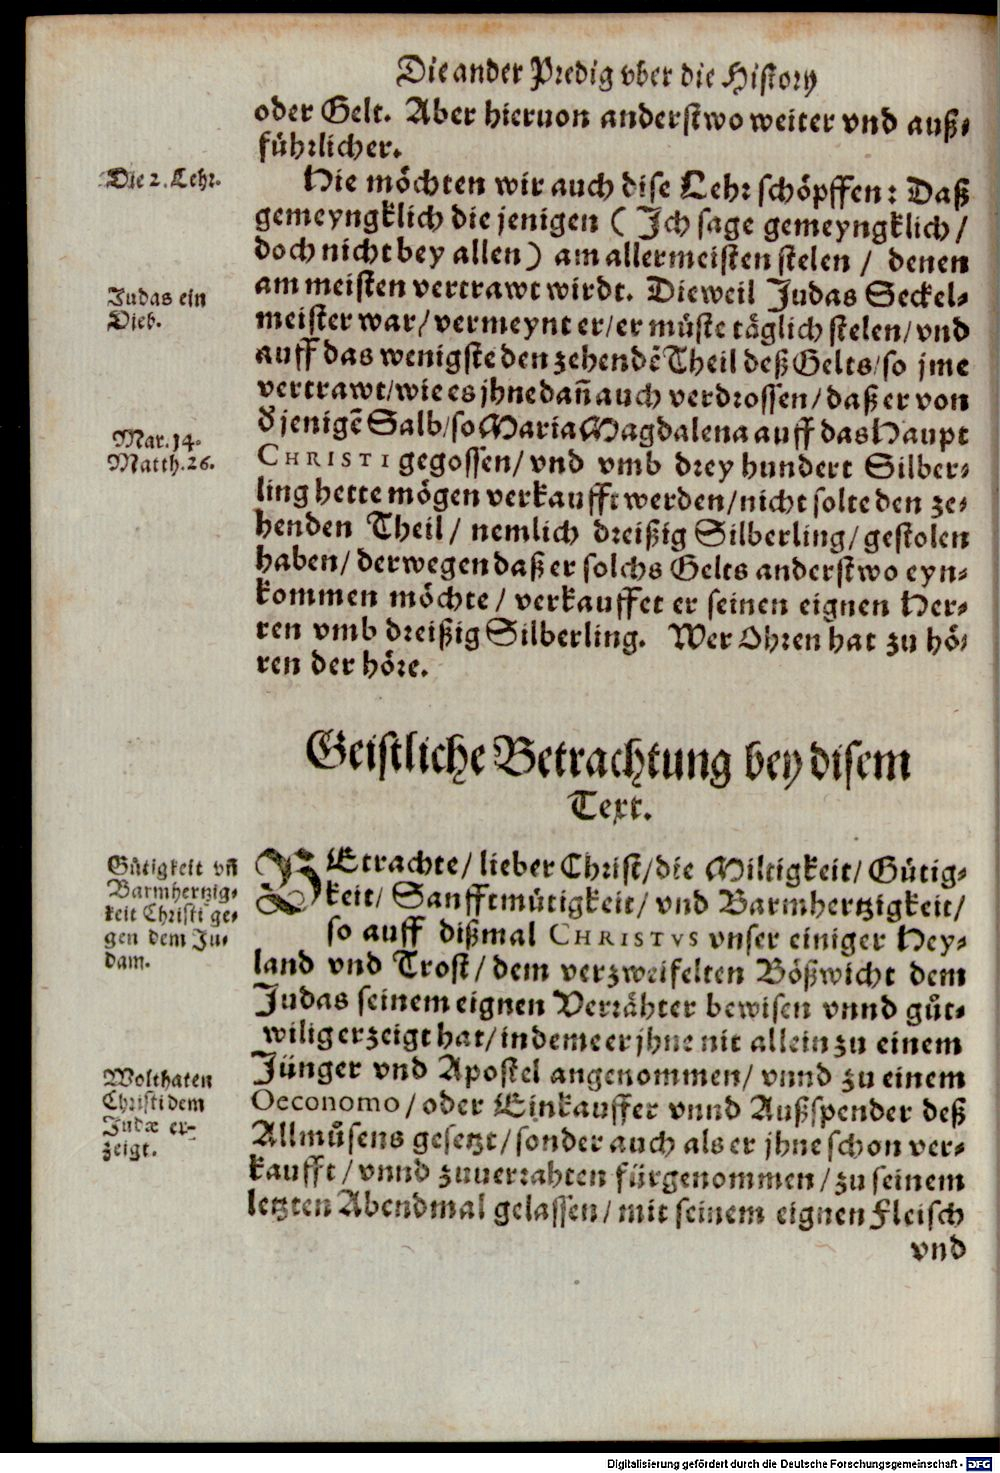 Die ander Predig vber die History
oder Gelt. Aber hieruon anderstwo weiter vnd auß-
führlicher.
Die 2. Lehr.
Hie möchten wir auch dise Lehr schöpffen: Daß
gemeyngklich die jenigen (Ich sage gemeyngklich /
doch nicht bey allen) am allermeisten stelen / denen
am meisten vertrawt wirdt. Dieweil Judas Seckel-
Judas ein
Dieb.
meister war / vermeynt er / er müste täglich stelen / vnd
auff das wenigste den zehendẽ Theil deß Gelts / so jme
vertrawt / wie es jhne dañ auch verdrossen / daß er von
d' jenigẽ Salb / so Maria Magdalena auff das Haupt
Mar. 14.
Matth. 26.
CHRISTI gegossen / vnd vmb drey hundert Silber-
ling hette mögen verkaufft werden / nicht solte den ze-
henden Theil / nemlich dreißig Silberling / gestolen
haben / derwegen daß er solchs Gelts anderstwo eyn-
kommen möchte / verkauffet er seinen eignen Her-
ren vmb dreißig Silberling. Wer Ohren hat zu hö-
ren der höre.
Geistliche Betrachtung bey disem
Text.
Gütigkeit vñ
Barmhertzig-
keit Christi ge-
gen dem Ju-
dam.
BEtrachte / lieber Christ / die Miltigkeit / Gütig-
keit / Sanfftmütigkeit / vnd Barmhertzigkeit /
so auff dißmal CHRISTVS vnser einiger Hey-
land vnd Trost / dem verzweifelten Bößwicht dem
Judas seinem eignen Verrähter bewisen vnnd gůt-
wilig erzeigt hat / indeme er jhne nit allein zu einem
Jünger vnd Apostel angenommen / vnnd zu einem
Wolthaten
Christi dem
Judæ er-
zeigt.
Oeconomo / oder Einkauffer vnnd Außspender deß
Allmůsens gesetzt / sonder auch als er jhne schon ver-
kaufft / vnnd zuuerrahten fürgenommen / zu seinem
letzten Abendmal gelassen / mit seinem eignen Fleisch
vnd
Digitalisierung gefördert durch die Deutsche Forschungsgemeinschaft - DFG